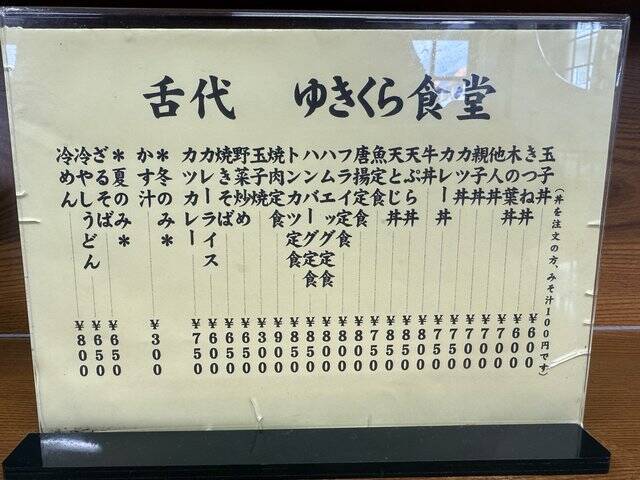 舌代 ゆきくら食堂
玉子丼 ¥600
(丼を注文の方、みそ汁100円です)
きつね丼 ¥600
木の葉丼 ¥700
他人丼 ¥700
親子丼 ¥700
カツ丼 ¥750
カレー丼 ¥750
牛丼 ¥800
天ぷら丼 ¥850
天とじ丼 ¥850
魚定食 ¥750
唐揚定食 ¥850
フライ定食 ¥800
ハムエッグ定食 ¥800
ハンバーグ定食 ¥850
トンカツ定食 ¥850
焼肉定食 ¥900
玉子焼 ¥300
野菜炒め ¥650
焼きそば ¥650
カレーライス ¥600
カツカレー ¥750
*冬のみ*
かす汁 ¥300
*夏のみ*
ざるそば ¥650
冷やしうどん ¥650
冷めん ¥800